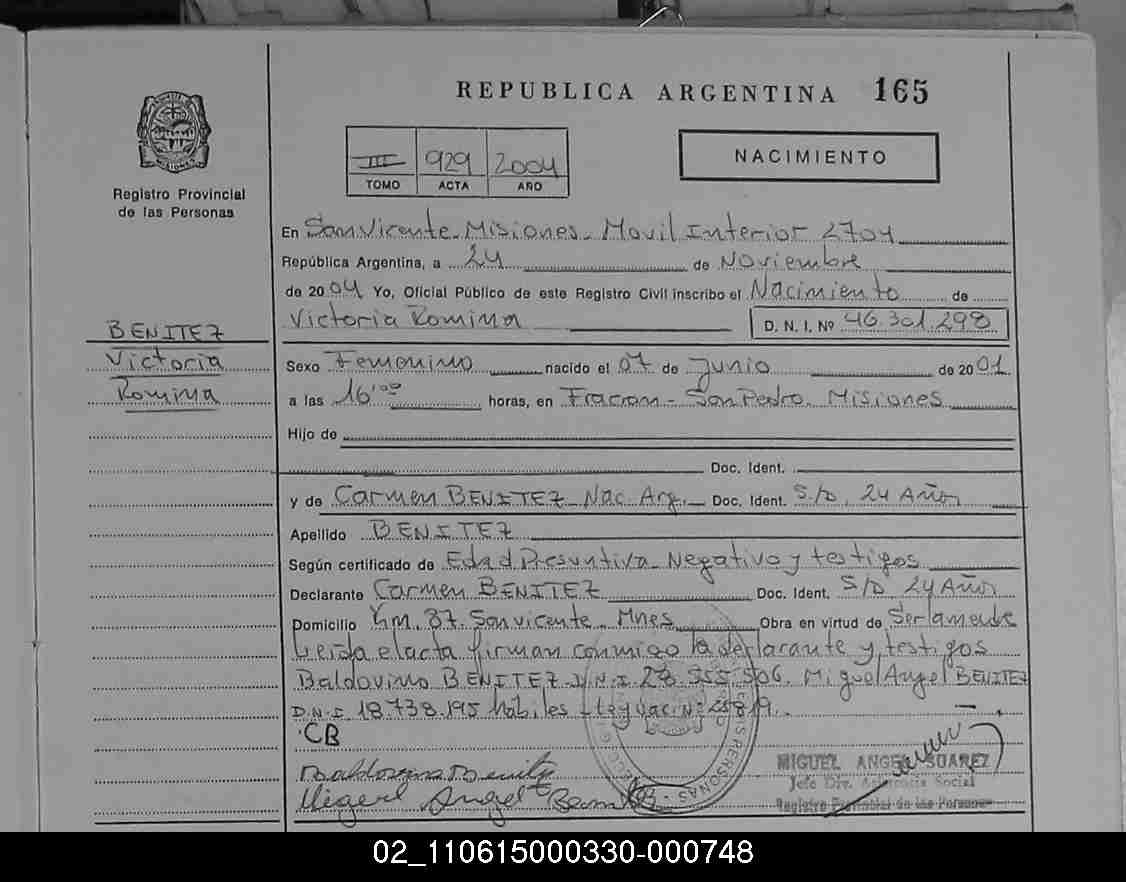 REPUBLICA ARGENTINA 165
Registro Provincial
de las Personas
III 929 2004
TOMO ACTA AÑO
NACIMIENTO
En San Vicente - Misiones - Movil Interior 2704
República Argentina, a 24 de Noviembre
de 2004 Yo, Oficial Público de este Registro Civil inscribo el Nacimiento de
Victoria Romina D. N. I. Nº 46.301.298
BENITEZ
Victoria
Romina
Sexo Femenino nacido el 07 de Junio de 2001
a las 16'00 horas, en Fracran - San Pedro - Misiones
Hijo de
Doc. Ident.
y de Carmen BENITEZ - Nac. Arg. Doc. Ident. S/D, 24 Años
Apellido BENITEZ
Según certificado de Edad Presuntiva Negativo y testigos
Declarante Carmen BENITEZ Doc. Ident. S/D 24 Años
Domicilio Km. 37. San vicente - Mnes Obra en virtud de Ser la madre
Leida el acta firman conmigo la declarante y testigos
Baldovino BENITEZ D.N.I. 28.555.506. Miguel Angel BENITEZ
D.N.I 18.738.195 habiles - Ley Nac. Nº 25819.
CB
Miguel Angel
MIGUEL ANGEL SUAREZ
Jefe Div. Asistencia Social
Registro Provincial de las Personas
02_110615000330-000748